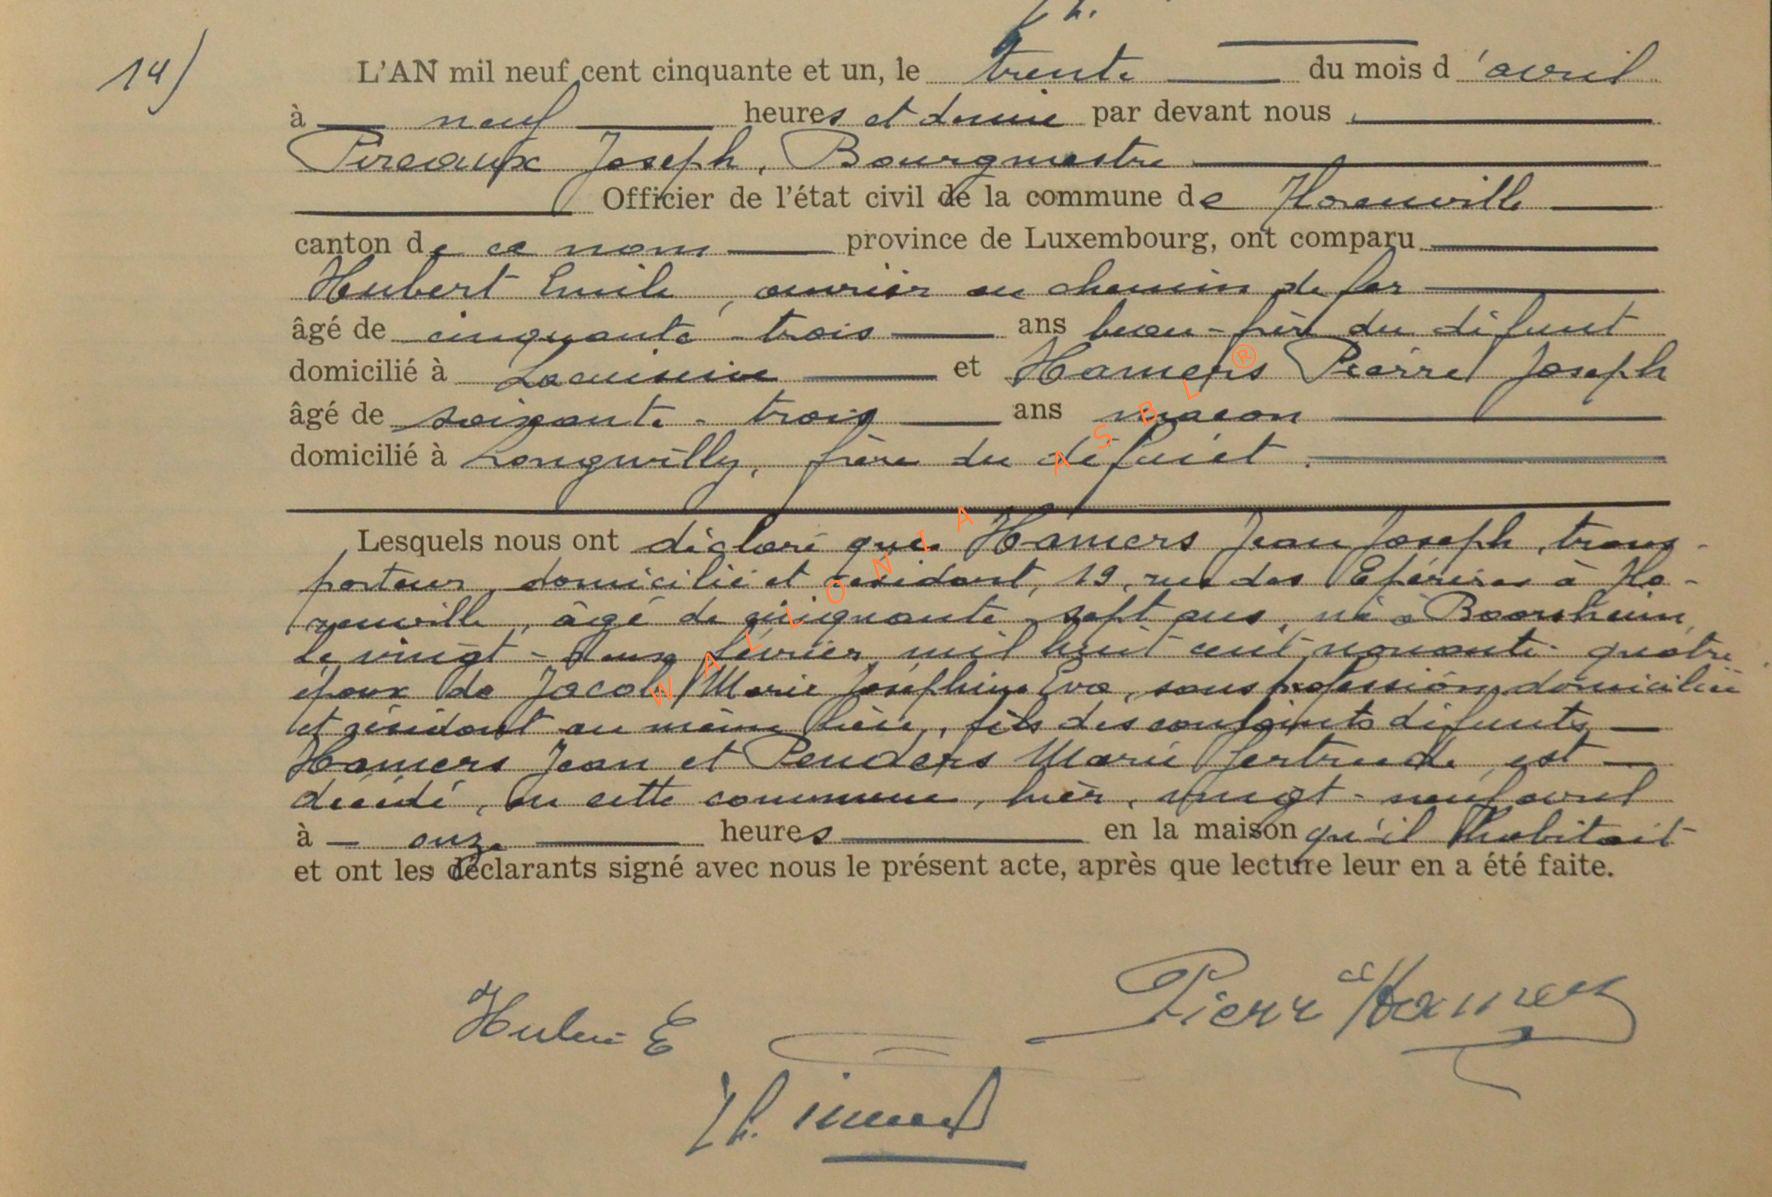 14)
L'AN mil neuf cent cinquante et un, le trente du mois d'avril
à neuf heures et demie par devant nous,
Pireaux Joseph, Bourgmestre
Officier de l'état civil de la commune de Horenville
canton de ce nom province de Luxembourg, ont comparu
Hubert Emile, ouvrier au chemin de fer
âgé de cinquante-trois ans beau-frère du défunt
domicilié à Lacuisine et Hamers Pierre Joseph
âgé de soixante-trois ans maçon
domicilié à Longwilly, frère du défunt.
Lesquels nous ont déclaré que Hamers Jean Joseph, trans-
porteur, domicilié et résidant, 19, rue des à Ho-
renville, âgé de cinquante-sept ans, né à
le vingt-deux février mil huit cent nonante-quatre,
époux de Jacob Marie Joséphine Eva, sans profession, domiciliée
et résidant au même lieu, fils des conjoints défunts
Hamers Jean et Penders Marie Gertrude est
décédé, en cette commune, hier, vingt-neuf avril
à onze heures en la maison qu'il habitait
et ont les déclarants signé avec nous le présent acte, après que lecture leur en a été faite.
Pierre Hamers
Hubert E
WALLONIA ASBL®